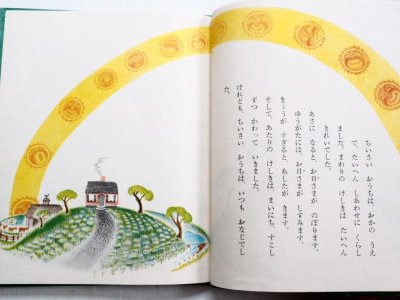 ちいさい おうちは、おかの うえ
で、たいへん しあわせに くらし
ました。まわりの けしきは たいへん
きれいでした。
あさに なると、お日さまが のぼります。
ゆうがたには、お日さまが しずみます。
きょうが すぎると、あしたが きます。
そして、あたりの けしきは、まいにち、すこし
ずつ かわって いきました。
けれども、ちいさい おうちは、いつも おなじでし
た。